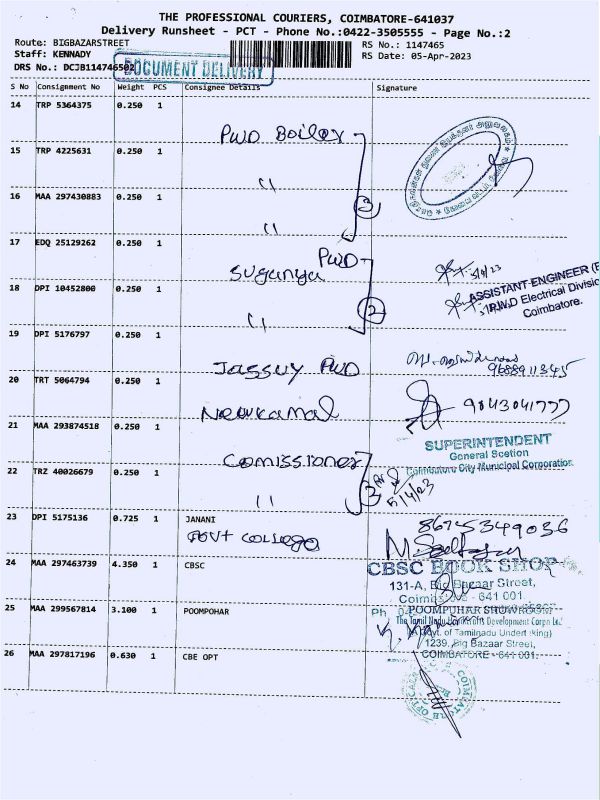 THE PROFESSIONAL COURIERS, COIMBATORE-641037
Delivery Runsheet - PCT - Phone No.:0422-3505555 - Page No.:2
Route: BIGBAZARSTREET RS No.: 1147465
Staff: KENNADY RS Date: 05-Apr-2023
DRS No.: DCJB1147465O2
DOCUMENT DELIVERY
S No Consignment No Weight PCS Consignee Details Signature
14 TRP 5364375 0.250 1
PWD Boiler
15 TRP 4225631 0.250 1
"
16 MAA 297430883 0.250 1
" 3
17 EDQ 25129262 0.250 1
Suganya PWD 5/4/23
18 DPI 10452800 0.250 1 ASSISTANT ENGINEER (E
" 2 P.W.D Electrical Divisio
Coimbatore.
19 DPI 5176797 0.250 1
Jassuy PWD 9688911345
20 TRT 5064794 0.250 1
Newkamal 9043041777
21 MAA 293874518 0.250 1 SUPERINTENDENT
Comissioner General Scetion
Coimbatore City Municipal Corporation
22 TRZ 40026679 0.250 1
" 5/4/23
23 DPI 5175136 0.725 1 JANANI 8675349036
Govt College
24 MAA 297463739 4.350 1 CBSC CBSC BOOK SHOP
131-A, Big Bazaar Street,
Coimbatore - 641 001.
25 MAA 299567814 3.100 1 POOMPOHAR POOMPUHAR SHOWROOM
The Tamil Nadu Handicrafts Development Corpn Ltd
(A Govt. of Tamilnadu Undertaking)
1239, Big Bazaar Street,
COIMBATORE - 641 001.
26 MAA 297817196 0.630 1 CBE OPT